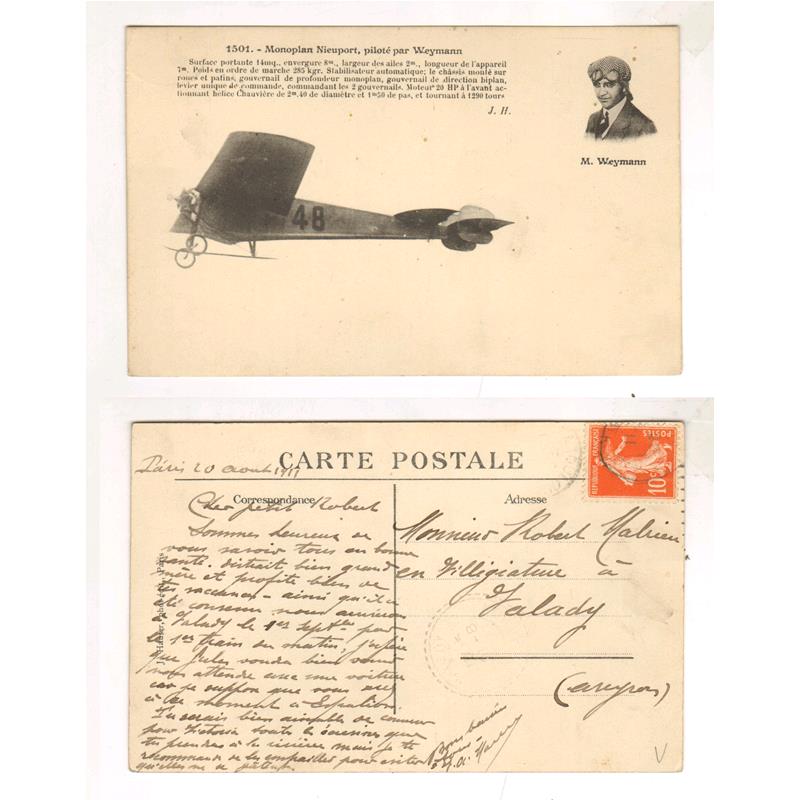 1501. - Monoplan Nieuport, piloté par Weymann
Surface portante 14mq., envergure 8m., largeur des ailes 2m., longueur de l'appareil
7m. Poids en ordre de marche 285 kgr. Stabilisateur automatique; le châssis monté sur
roues et patins, gouvernail de profondeur monoplan, gouvernail de direction biplan,
levier unique de commande, commandant les 2 gouvernails. Moteur 20 HP à l'avant ac-
tionnant hélice Chauvière de 2m.40 de diamètre et 1m50 de pas, et tournant à 1290 tours
J. H.
M. Weymann
48
CARTE POSTALE
Paris 20 aout 1911
Correspondance
Adresse
RÉPUBLIQUE FRANÇAISE
POSTES
10c
J. Hauser, phot.-édit., Paris
Cher petit Robert
Sommes heureux de
vous savoir tous en bonne
santé. bien grand
mère et profite bien de
tes vacances - ainsi qu'il a
été convenu nous arriverons
à Valady le 1er Septbre par
le 1er train du matin, j'espère
que Jules voudra bien venir
nous attendre avec une voiture
car je suppose que vous
à ce moment à Espalion.
Tu serais bien aimable de
pour Victoria toutes les que
tu prendras à la rivière mais je te
recommande de les pour éviter
qu'elles ne se
Monsieur Robert
en Villégiature à
Valady
(Aveyron)
Bons baisers
V